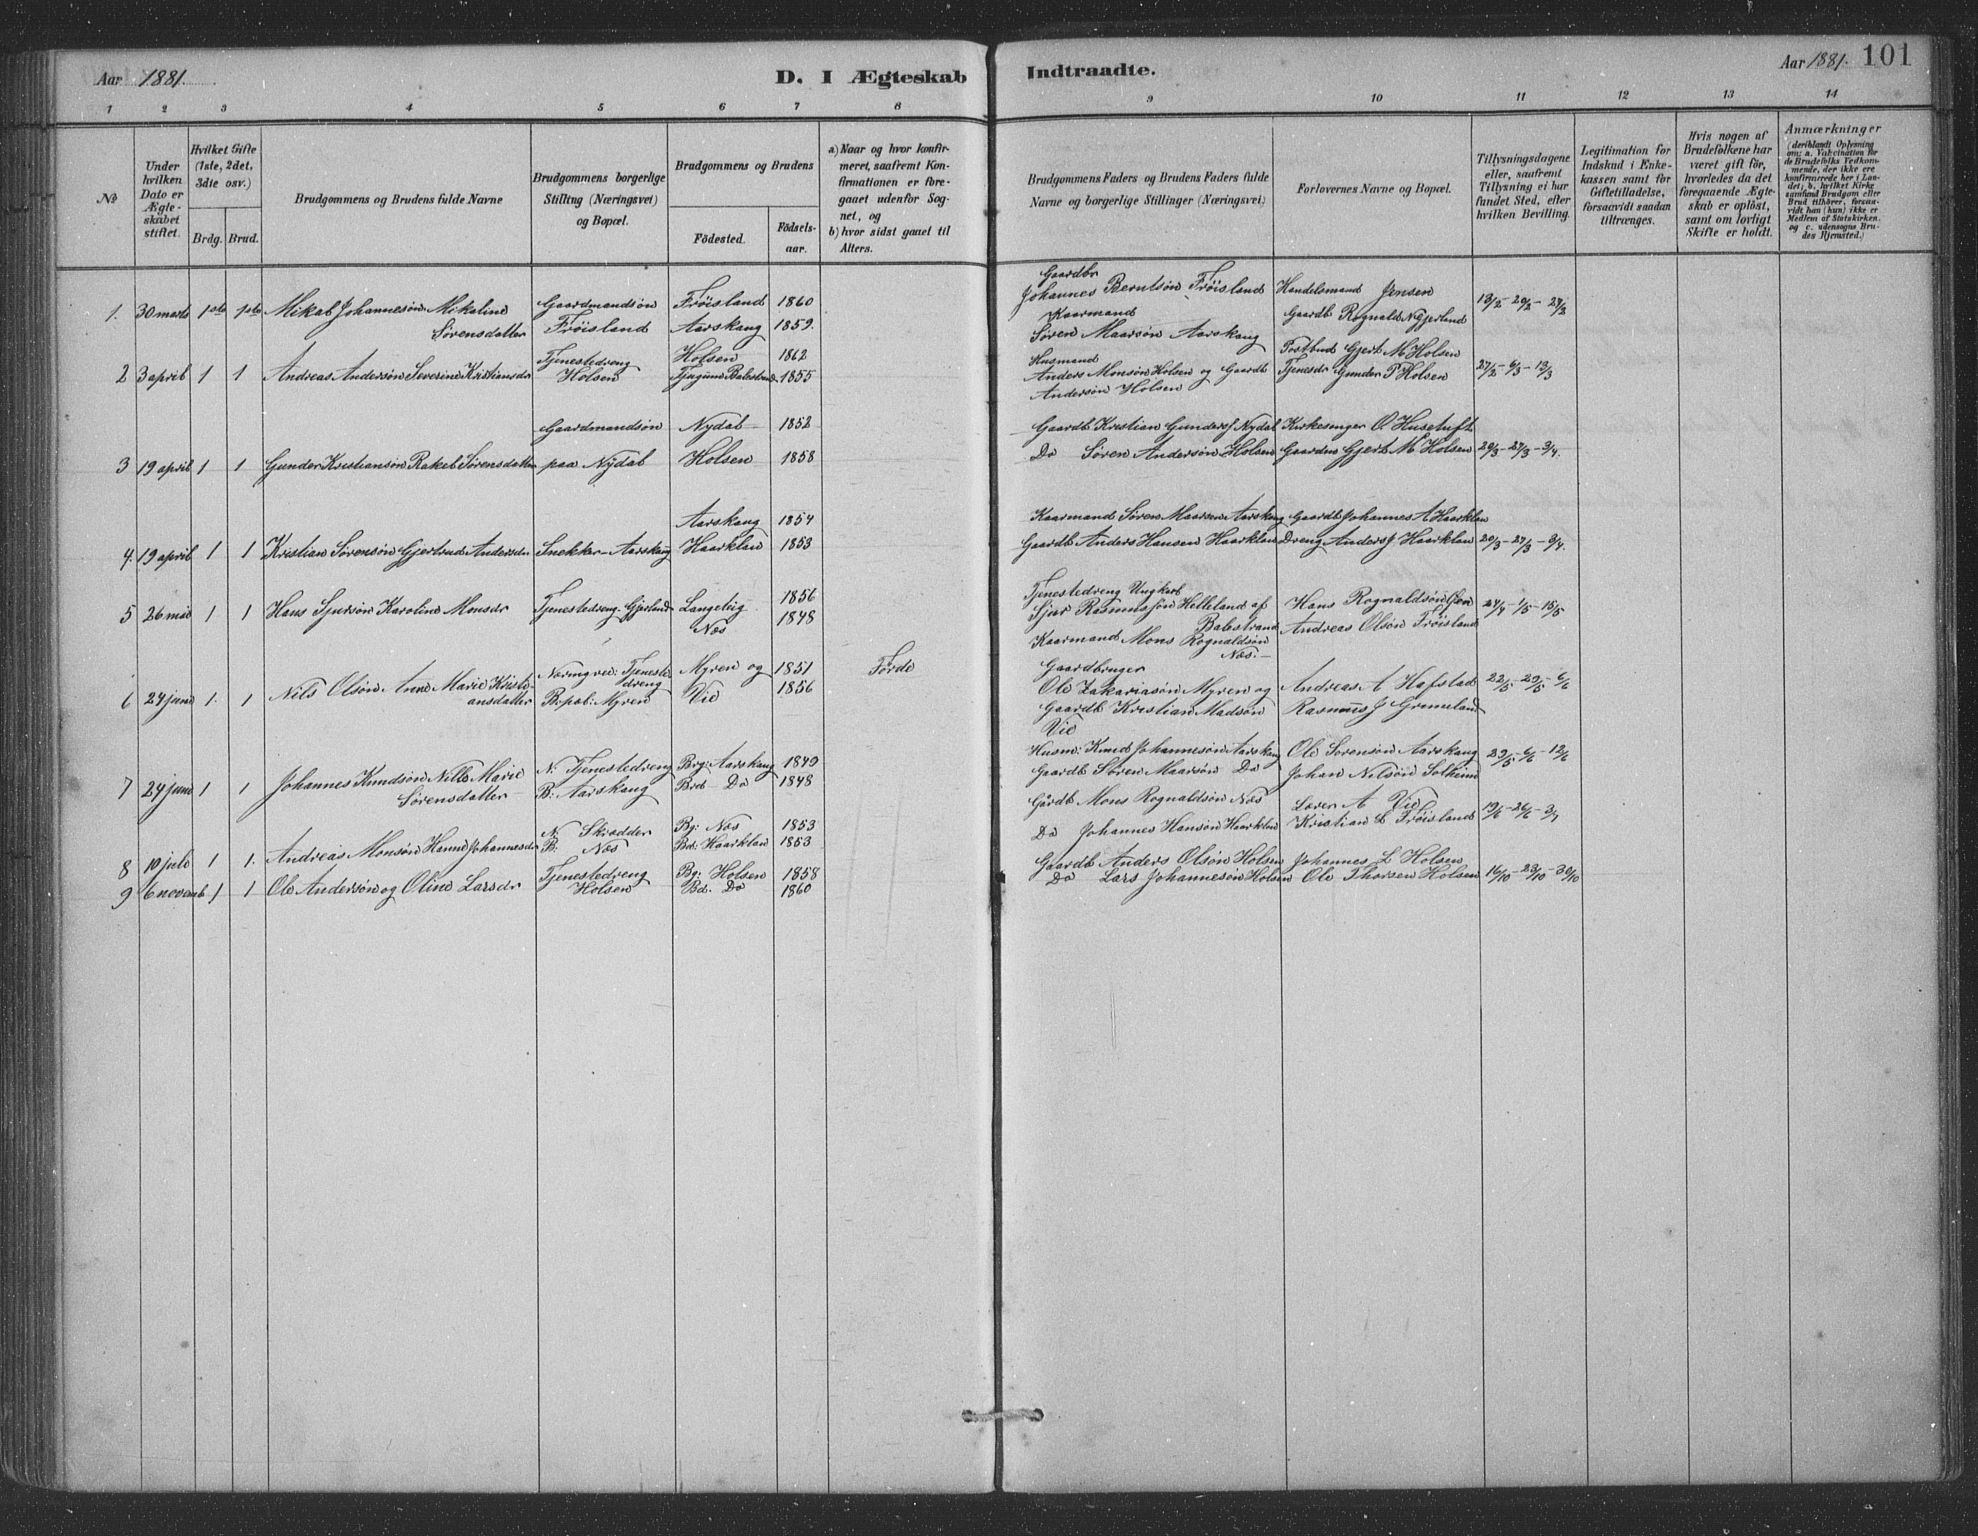 Aar 1881.
D. I Ægteskab Indtraadte.
Aar 1881. 101
1 2 3 4 5 6 7 8 9 10 11 12 13 14
№
Under hvilken Dato er Ægteskabet stiftet.
Hvilket Gifte (1ste, 2det, 3die osv.)
Brdg. Brud.
Brudgommens og Brudens fulde Navne
Brudgommens borgerlige Stilling (Næringsvei) og Bopæl.
Brudgommens og Brudens
Födested.
Födselsaar.
a) Naar og hvor konfirmeret, saafremt Konfirmationen er foregaaet udenfor Sognet, og
b) hvor sidst gaaet til Alters.
Brudgommens Faders og Brudens Faders fulde Navne og borgerlige Stillinger (Næringsvei)
Forlovernes Navne og Bopæl.
Tillysningsdagene eller, saafremt Tillysning ei har fundet Sted, efter hvilken Bevilling.
Legitimation for Indskud i Enkekassen samt for Giftetilladelse, forsaavidt saadan tiltrænges.
Hvis nogen af Brudefolkene har været gift før, hvorledes da det foregaaende Ægteskab er oplöst, samt om lovligt Skifte er holdt.
Anmærkninger (deriblandt Oplysning om: a. Vaccination for de Brudefolks Vedkommende, der ikke ere konfirmerede her i Landet; b. hvilket Kirkesamfund Brudgom eller Brud tilhörer, forsaavidt han (hun) ikke er Medlem af Statskirken, og c. udensogns Brudes Hjemsted.)
1. 30 marts 1ste 1ste Mikal Johannesøn Mikaline Sørensdatter
Gaardmandsøn Frøisland
Frøisland 1860
Aarskaug 1859.
Gaardbr Johannes Berntsøn Frøisland
Kaarmand Søren Maarsøn Aarskaug
Handelsmand Jensen
Gaardb Rognald N Gjerland
13/2 - 20/2 - 27/2
2 3 april 1 1 Andreas Andersøn Severine Kristiansdr
Tjenestedreng Holsen
Holsen 1862
Tjugum Balestrand 1855
Husmand Anders Monsøn Holsen og Gaardb
Andersøn Holsen
Postbud Gjert M Holsen
Tjenesdr Gunder P Holsen
27/2 - 6/3 - 13/3
3 19 april 1 1 Gunder Kristiansøn Rakel Sørensdatter
Gaardmandsøn paa Nydal
Nydal 1852
Holsen 1858
Gaardb Kristian Gunders. Nydal
Do Søren Andersøn Holsen
Kirkesanger O Husetuft
Gaardm Gjert M Holsen
20/3 - 27/3 - 3/4.
4. 19 april 1 1 Kristian Sørensøn Gjertrud Andersdr
Snekker - Aarskaug
Aarskaug 1854
Haarklau 1853
Kaarmand Søren Maarsen Aarskaug
Gaardb Anders Hansen Haarklau
Gaardb Johannes A Haarklau
Dreng Anders J Haarklau
20/3 - 27/3 - 3/4.
5 26 mai 1 1 Hans Sjursøn Karoline Monsdr
Tjenestedreng - Gjerland
Langeteig 1856
Næs 1848
Tjenestedreng Ungkarl
Sjur Rasmussøn Helleland af Balestrand
Kaarmand Mons Rognaldsøn Næs. -
Hans Rognaldsøn Øen
Andreas Olsøn Frøisland
24/4 - 1/5 - 15/5
6 24 juni 1. 1 Nils Olsøn Anne Marie Kristiansdatter
Næringvei: Tjenestedreng
Bopæl: Myren
Myren og 1851
Vie 1856
Førde
Gaardbruger
Ole Zakariasøn Myren og
Gaardb Kristian Madsøn
Vie
Andreas A Hafstad
Rasmus J Grimeland
22/5 - 29/5 - 6/6
7 24 juni 1 1 Johannes Knudsøn Nille Marie Sørensdatter
N. Tjenestedreng
B: Aarskaug
Brg: Aarskaug 1849
Brd Do 1848
Husm: Knud Johannesøn Aarskaug
Gaardb Søren Maarsøn Do
Ole Sørensøn Aarskaug
Johan Nilsøn Solheim
29/5 - 6/6 - 12/6
8 10 juli 1 1. Andreas Monsøn Hanne Johannesdr
N Skrædder
B. Næs
Bg: Næs 1853
Bd: Haarklau 1853
Gårdb Mons Rognaldsøn Næs
Do Johannes Hansøn Haarklau
Lærer A Vie
Kristian L Frøisland
19/6 - 26/6 - 3/7
9 6 novemb 1 1 Ole Andersøn og Oline Larsdr
Tjenestedreng Holsen
Bg: Holsen 1858
Bd. Do 1860
Gaardb Anders Olsøn Holsen
Do Lars Johannesøn Holsen
Johannes L Holsen
Ole Thorsen Holsen
16/10 - 23/10 - 30/10